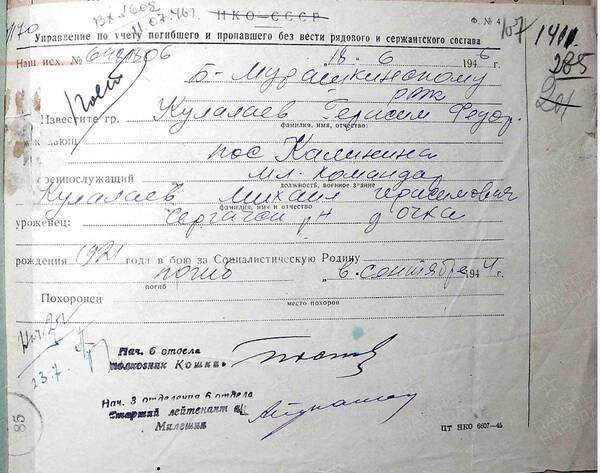 Вх № 602
11 07.46г.
НКО-СССР
Ф. № 4
107
1411
285
201
Управление по учету погибшего и пропавшего без вести рядового и сержантского состава
Наш исх. № 642306
18. 6 1946 г.
Б-Мурашкинскому
рвк
Известите гр. Кулалаев Герасим Федор.
фамилия, имя, отчество
пос Калинина
еннослужащий мл. команда
должность, военное звание
Кулалаев Михаил Герасимович
фамилия, имя и отчество
уроженец: Сергачск рн д Очка
рождения 1921 года в бою за Социалистическую Родину
погиб 6. сентября 1941 г.
погиб
Похоронен
место похорон
23.7
Нач. 6 отдела
полковник Кошки
Нач. 3 отделения 6 отдела
Старший лейтенант
Милешин
85
ЦТ НКО 6607-45